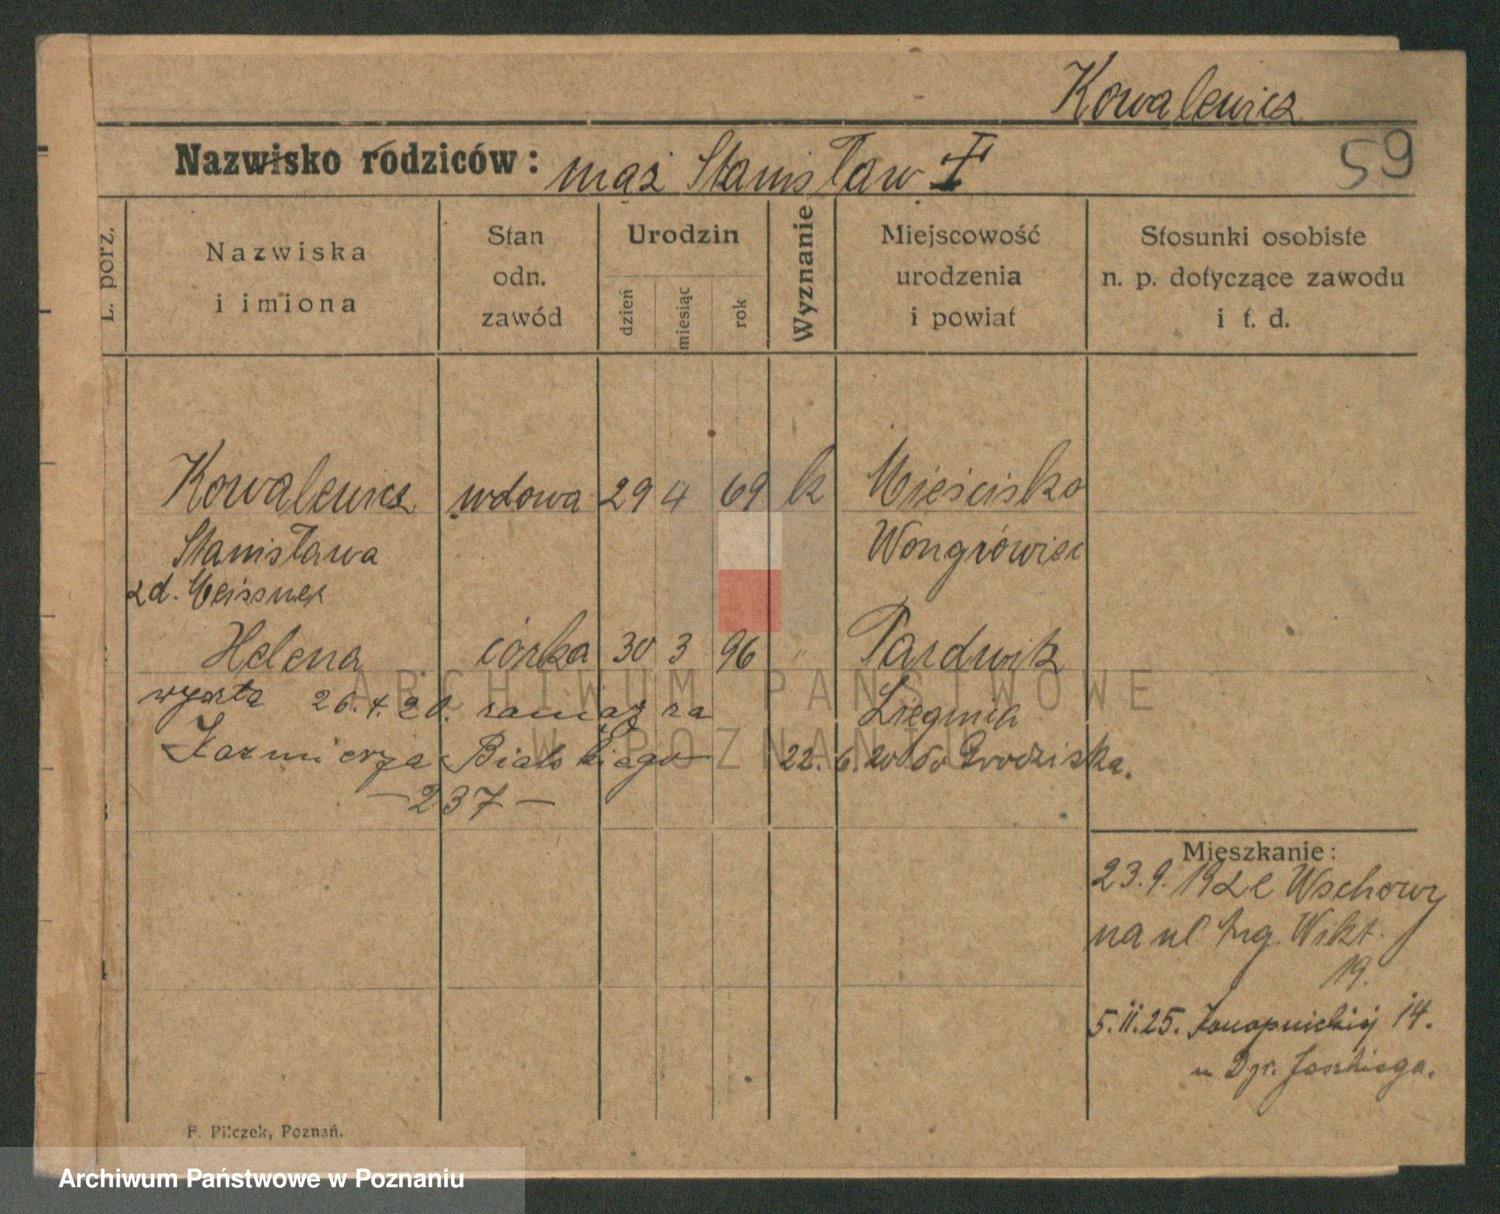 Kowalewicz
59
Nazwisko rodziców: mąż Stanisław †
L. porz.
Nazwiska i imiona
Stan odn. zawód
Urodzin
dzień miesiąc rok
Wyznanie
Miejscowość urodzenia i powiat
Stosunki osobiste n. p. dotyczące zawodu i t. d.
Kowalewicz wdowa 29 4 69 k Mieścisko
Stanisława Wongrówiec
zd. Meissner
Helena córka 30 3 96 "
wyszła 26.4.20. zamąż za
Kazmierza Bialskiego 22.6.20 do Grodziska.
— 237 —
Mieszkanie:
23.9.19 z Wschowy
na ul Wikt.
19.
5.II.25. Konopnickiej 14.
u
F. Pilczek, Poznań.
ARCHIWUM PAŃSTWOWE
W POZNANIU
Archiwum Państwowe w Poznaniu